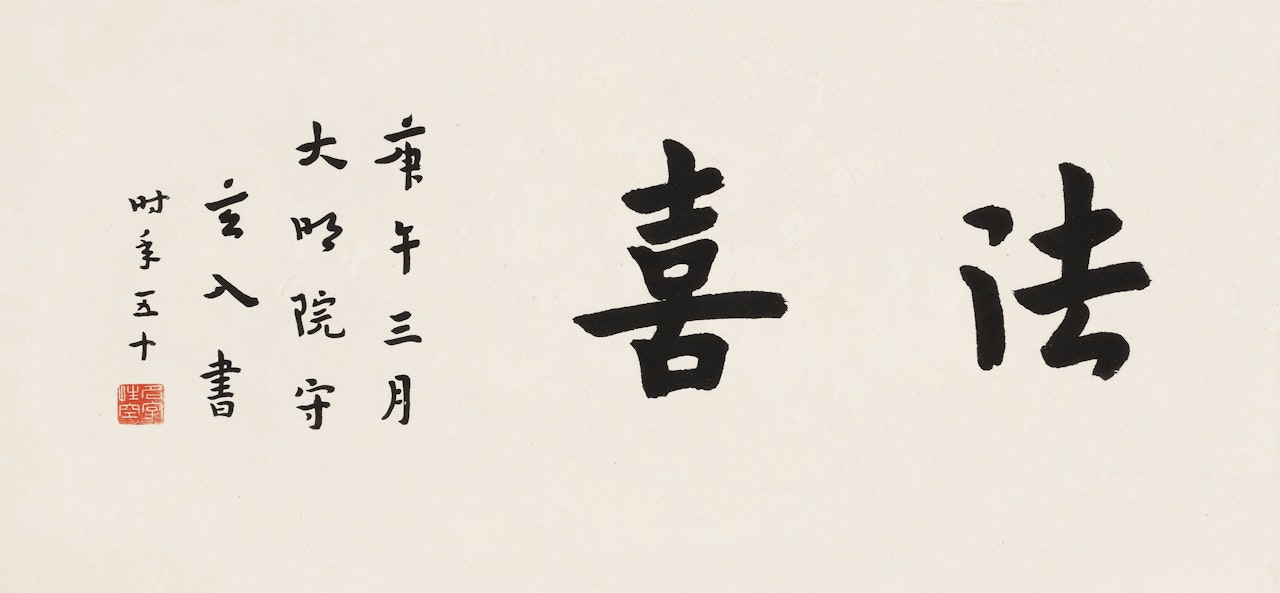 法喜
庚午三月
大明院守
玄入書
时年五十
名字性空